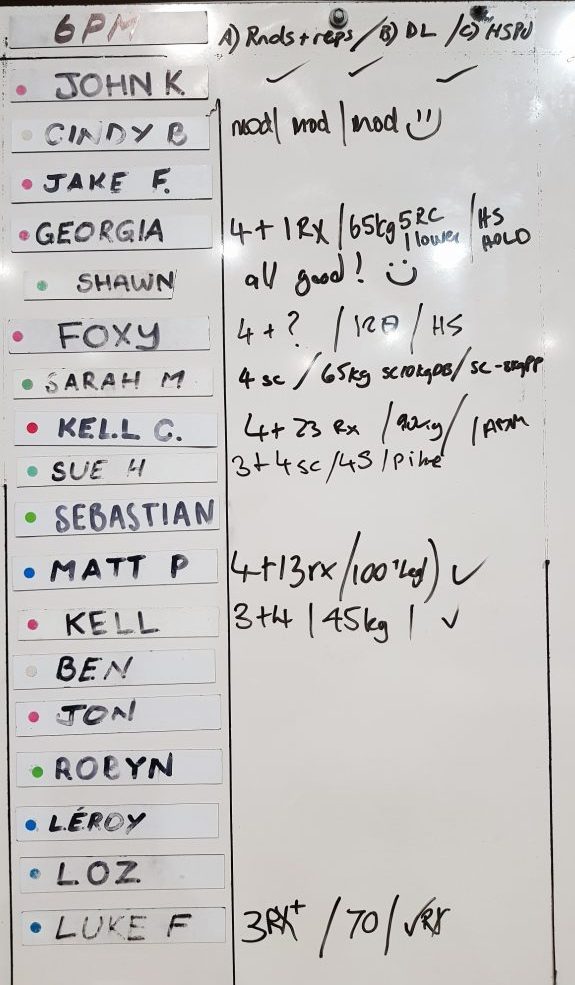 6PM A) Rnds + reps / B) DL / C) HSPU
JOHN K ✓ ✓ ✓
CINDY B mod / mod / mod
JAKE F.
GEORGIA 4 + 1 RX / 65kg 5RC 1 lower / HS HOLD
SHAWN all good!
FOXY 4 + ? / 120 / HS
SARAH M 4 sc / 65kg sc10kgDB / sc-8kgPP
KELL C. 4 + 23 Rx / 90kg /
SUE H 3 + 4 sc / 45 / Pike
SEBASTIAN
MATT P 4+13rx / 100 ✓
KELL 3+4 / 45kg / ✓
BEN
JON
ROBYN
LÉROY
LOZ
LUKE F 3RX+ / 70 / ✓RX